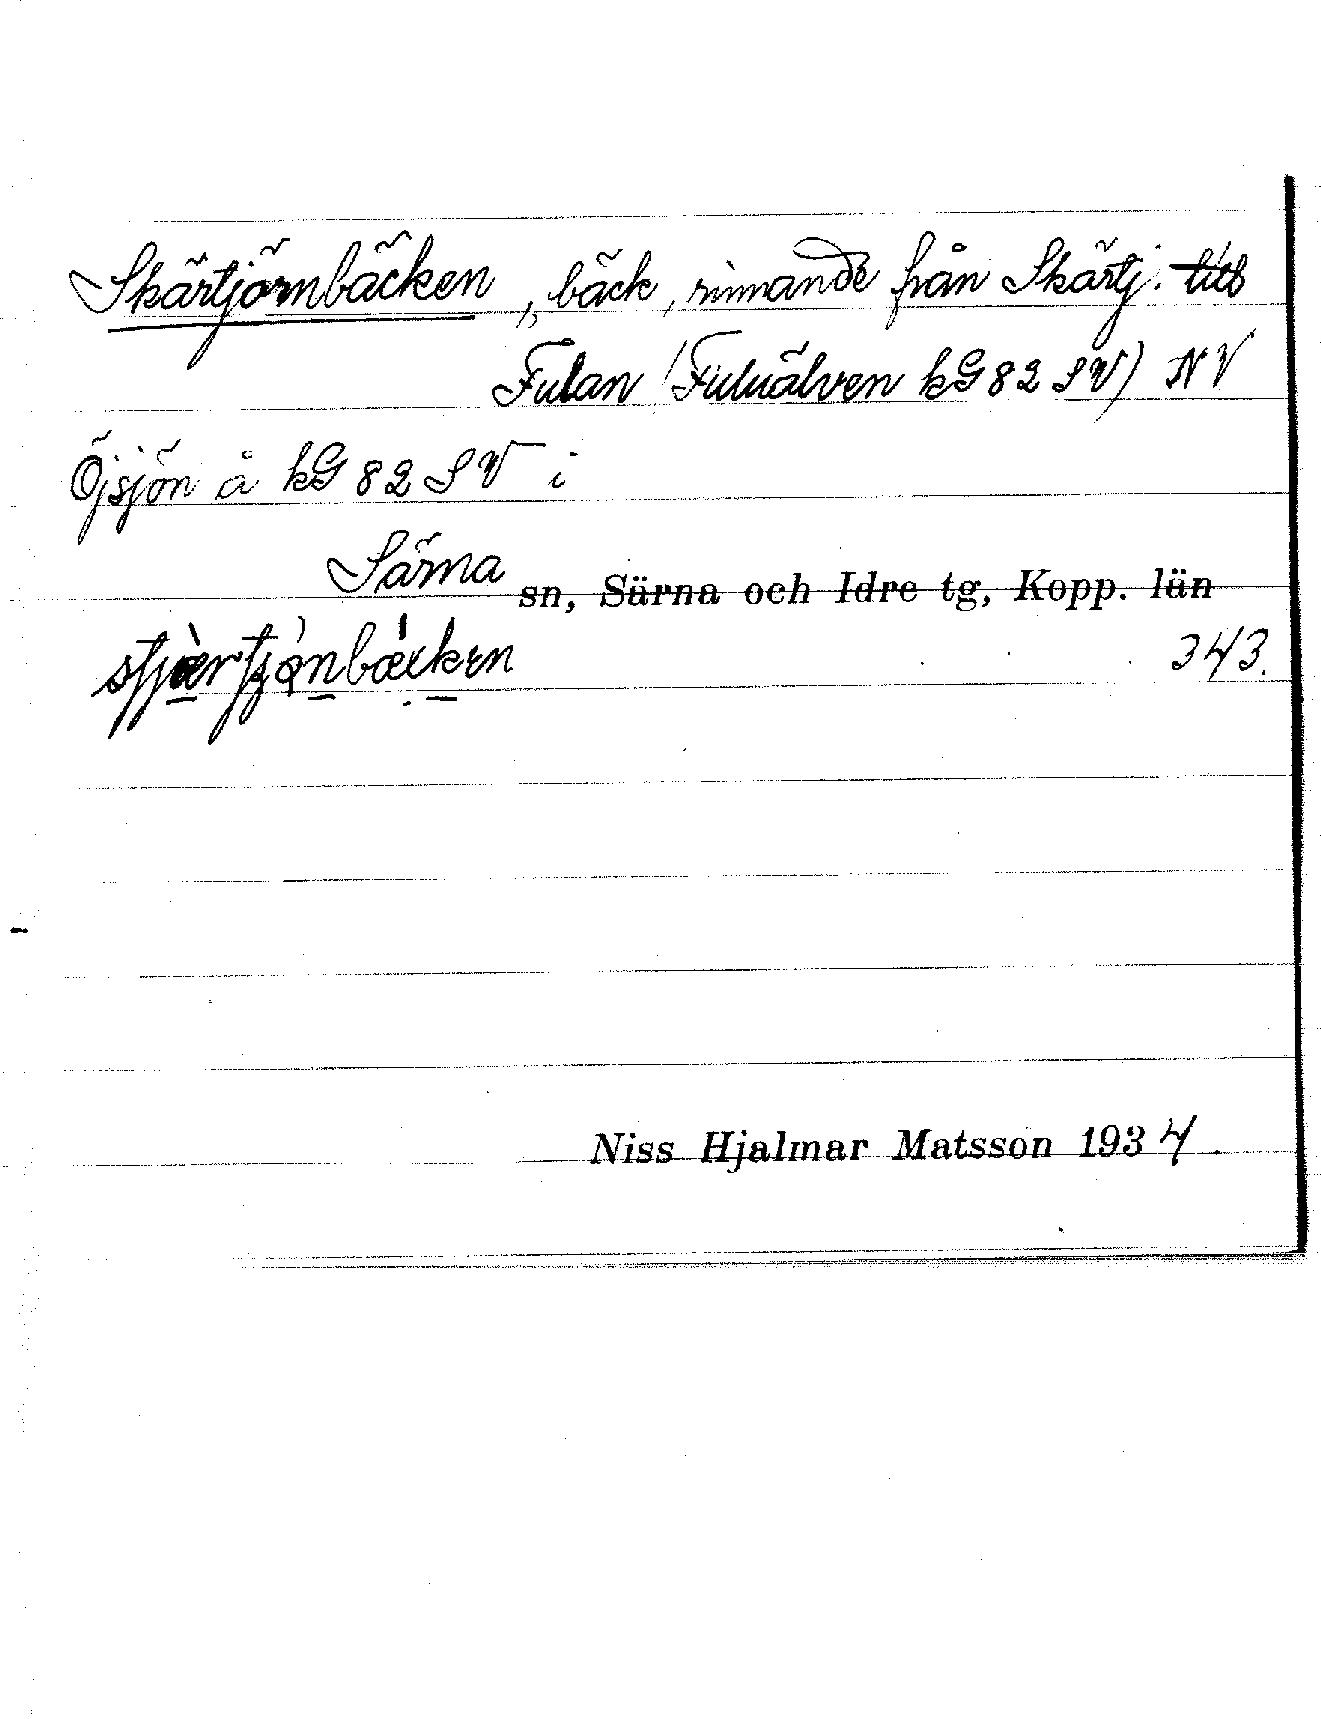 Skärtjörnbäcken, bäck, rinnande från Skärtj. till
Fulan (Fuluälven kG 82 SV) NV
Öjsjön å kG 82 SV i
Särna sn, Särna och Idre tg, Kopp. län
343.
Niss Hjalmar Matsson 1934.